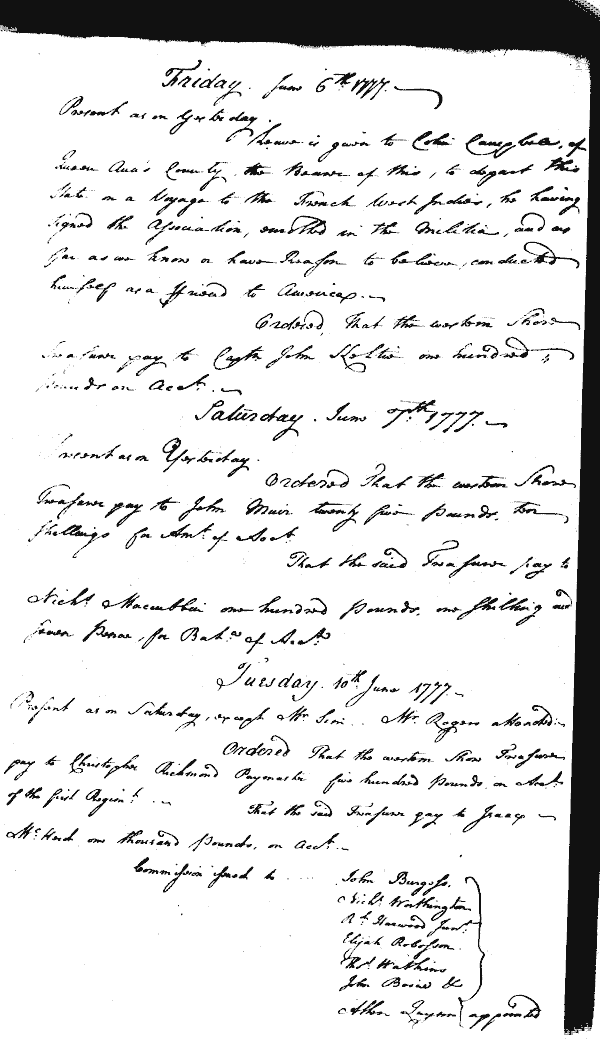 Friday. June 6th 1777.
Present as on Yesterday.
Leave is given to Colin Campbell, of
Queen Ann's County, the Bearer of this, to depart this
State on a Voyage to the French West Indies, he having
signed the Association, enrolled in the Militia, and as
far as we know or have Reason to believe, conducted
himself as a friend to America.
Ordered, That the western Shore
Treasurer pay to Captn. John Keltie one hundred
pounds on Acct.
Saturday. June 7th 1777.
Present as on Yesterday.
Ordered That the western Shore
Treasurer pay to John Muir twenty five pounds, ten
shillings for Amt. of Acct
That the said Treasurer pay to
Nichs. Maccubbin one hundred pounds, one shilling and
seven Pence, for Balce. of Acct.
Tuesday. 10th June 1777.
Present as on Saturday, except Mr. Sim. Mr. Rogers attended.
Ordered That the western Shore Treasurer
pay to Christopher Richmond Paymaster five hundred pounds on Acct.
of the first Regimt.
That the said Treasurer pay to Isaac
McHard one thousand pounds, on Acct.
Commission issued to
John Burgess.
Nichs. Worthington
Rd. Harwood Junr.
Elijah Robosson
Thos. Watkins
John Boone &
Allen Quynn appointed